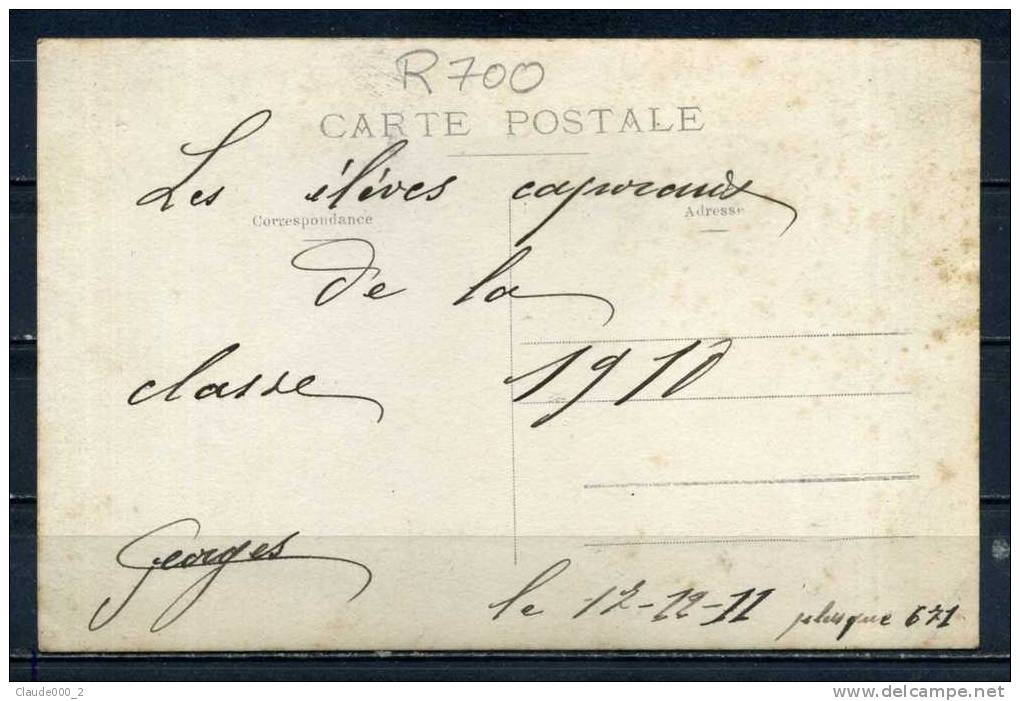 R700
CARTE POSTALE
Les élèves caporaux
Correspondance
Adresse
de la
classe 1910
Georges
le 17-12-11
plusque 671
Claude000_2
http://www.delcampe.net